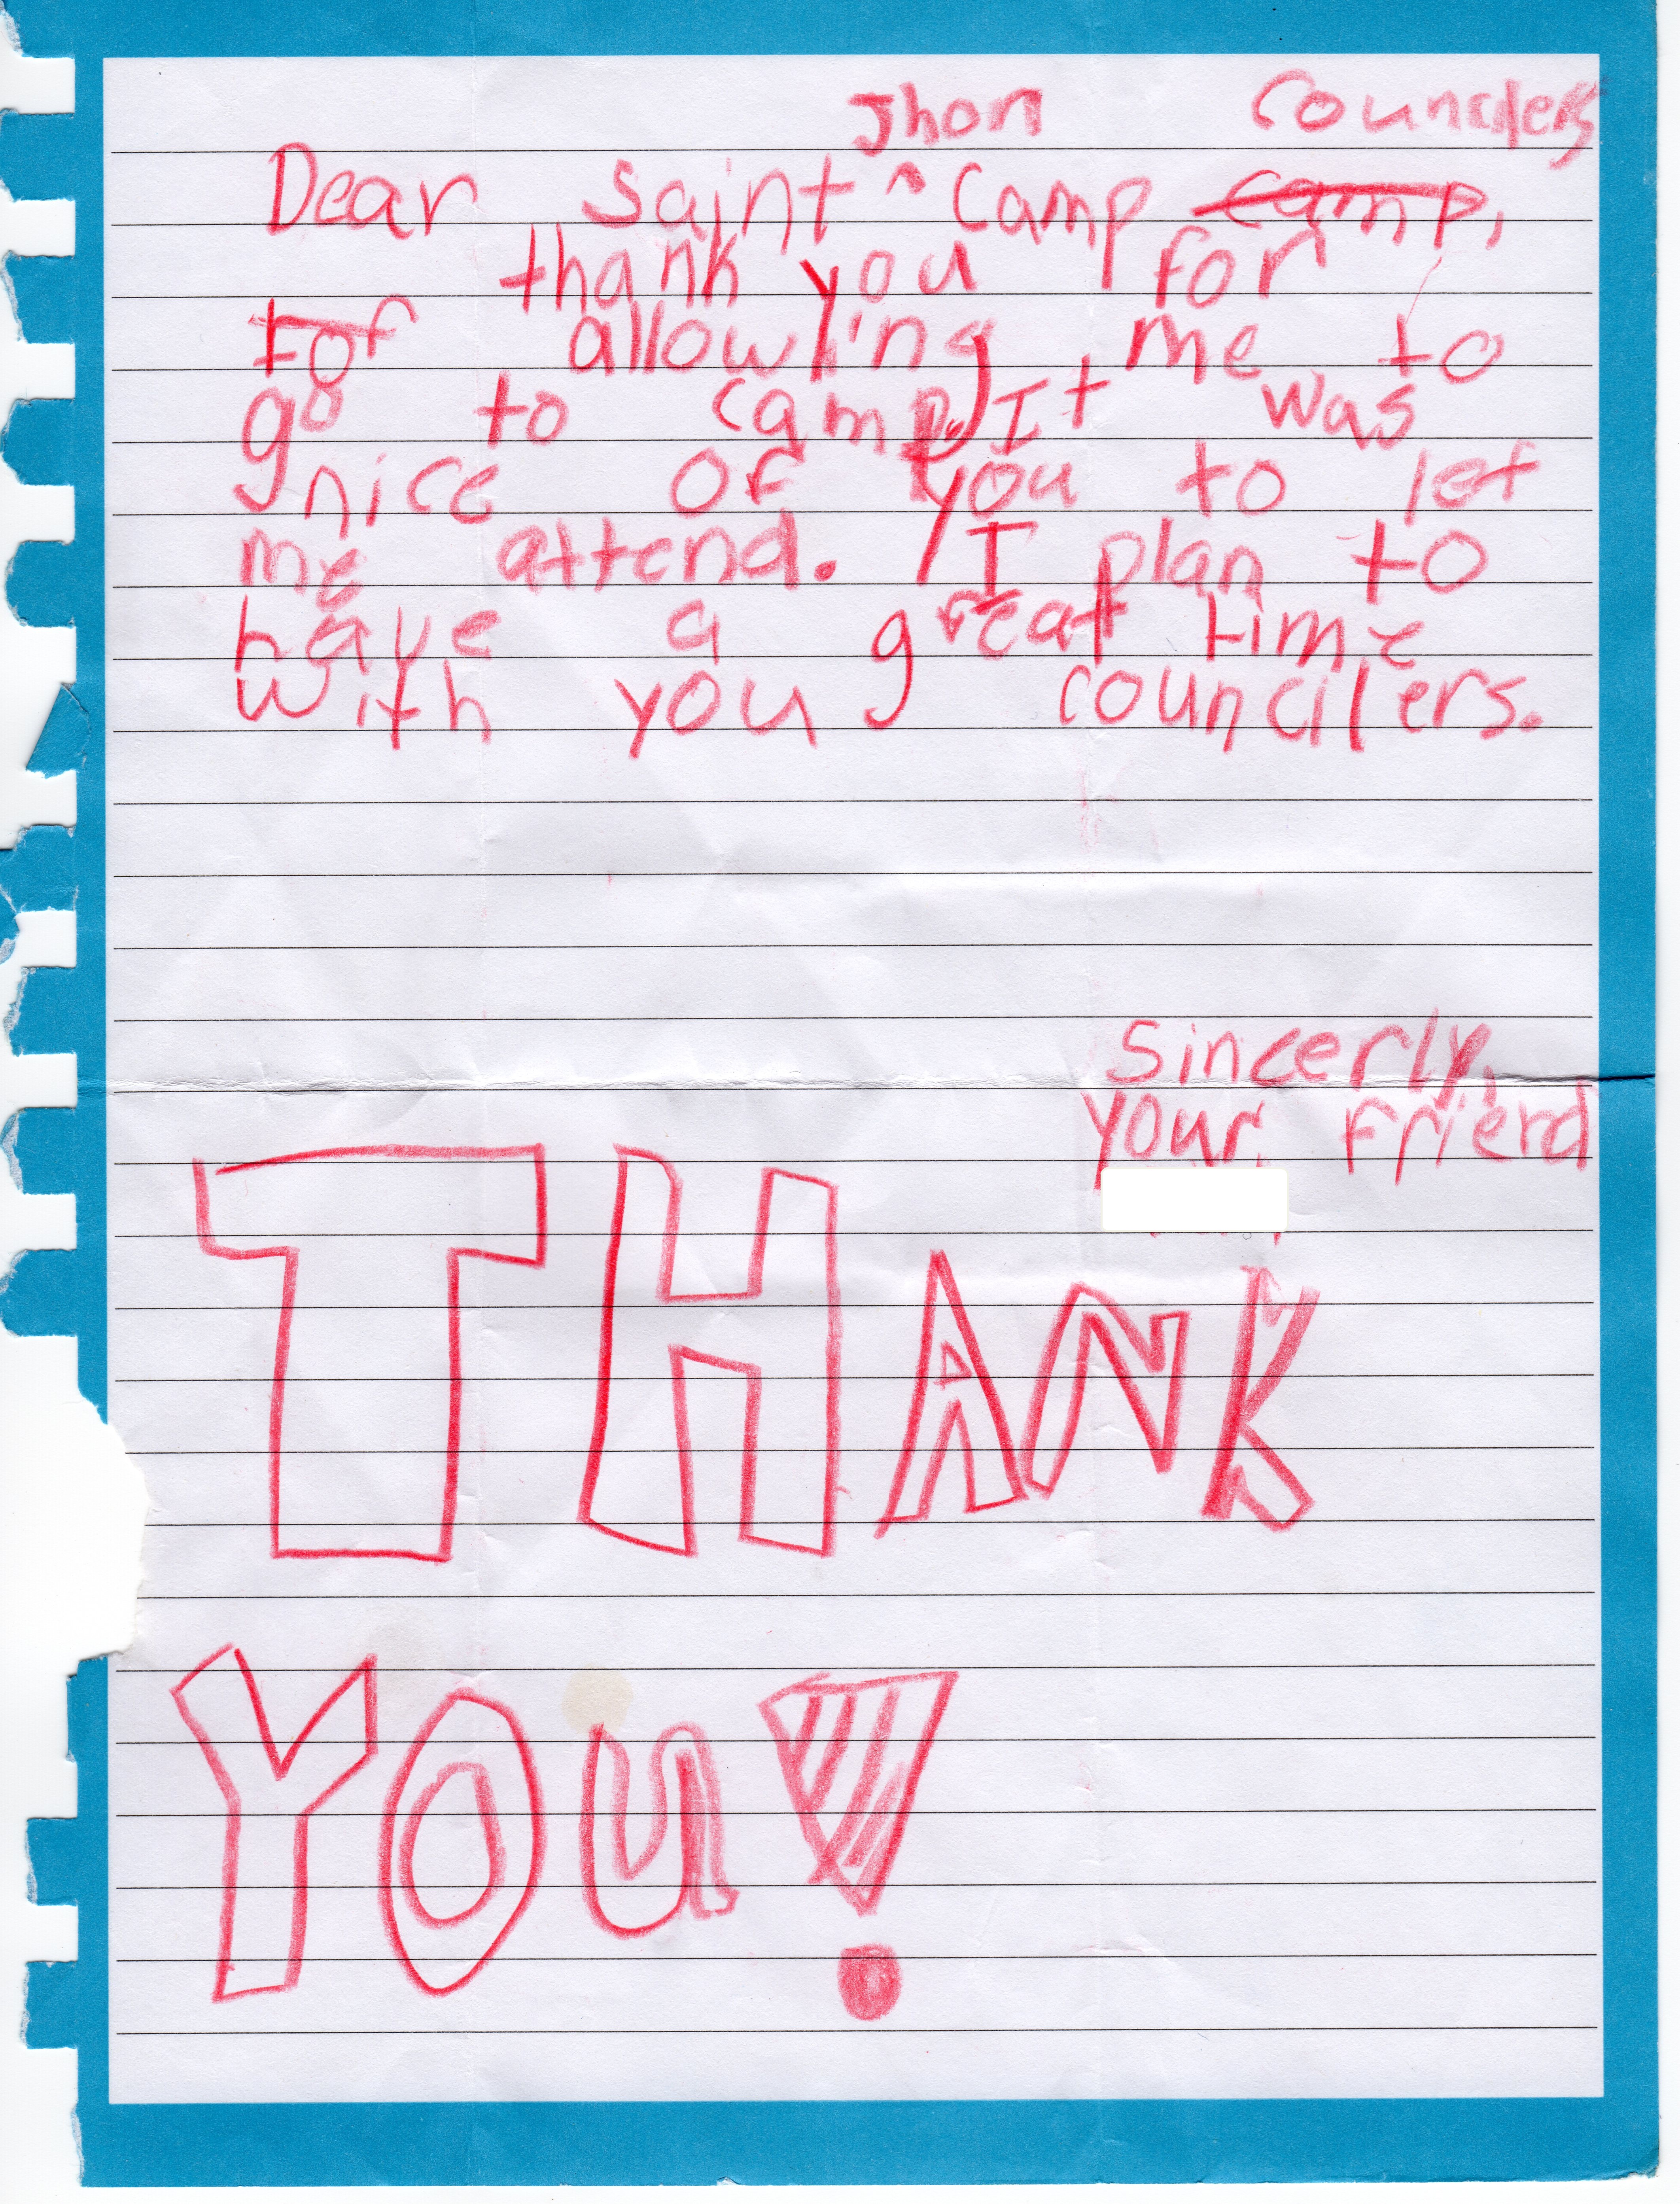 Jhon Councilers
Dear Saint ^ Camp camp,
thank you for
for allowing me to
go to camp. It was
nice of you to let
me attend. I plan to
have a great time
with you councilers.
Sincerly,
your friend
THANK
YOU!